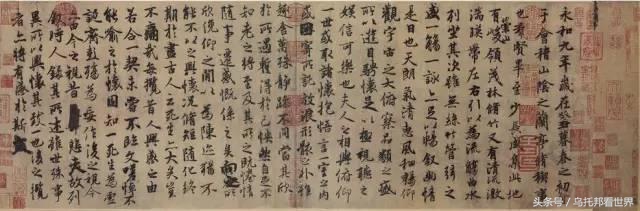 永和九年歲在癸丑暮春之初會
于會稽山陰之蘭亭脩稧事
也羣賢畢至少長咸集此地
有崇山峻領茂林脩竹又有清流激
湍暎帶左右引以為流觴曲水
列坐其次雖無絲竹管弦之
盛一觴一詠亦足以暢敘幽情
是日也天朗氣清惠風和暢仰
觀宇宙之大俯察品類之盛
所以遊目騁懷足以極視聽之
娛信可樂也夫人之相與俯仰
一世或取諸懷抱悟言一室之內
或因寄所託放浪形骸之外雖
趣舍萬殊靜躁不同當其欣
於所遇蹔得於己怏然自足不
知老之將至及其所之既惓情
隨事遷感慨係之矣向之所
欣俛仰之閒以為陳跡猶不
能不以之興懷況脩短隨化終
期於盡古人云死生亦大矣豈
不痛哉每攬昔人興感之由
若合一契未嘗不臨文嗟悼不
能喻之於懷固知一死生為虛
誕齊彭殤為妄作後之視今
亦由今之視昔悲夫故列
敘時人錄其所述雖世殊事
異所以興懷其致一也後之攬
者亦將有感於斯
头条号/乌托邦看世界